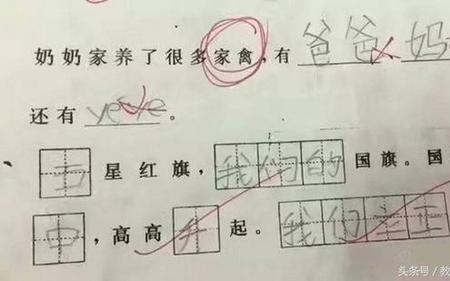 奶奶家养了很多家禽，有爸爸、妈
还有yeye。
五星红旗，我们的国旗。国
中，高高升起。我们立正
头条号/教